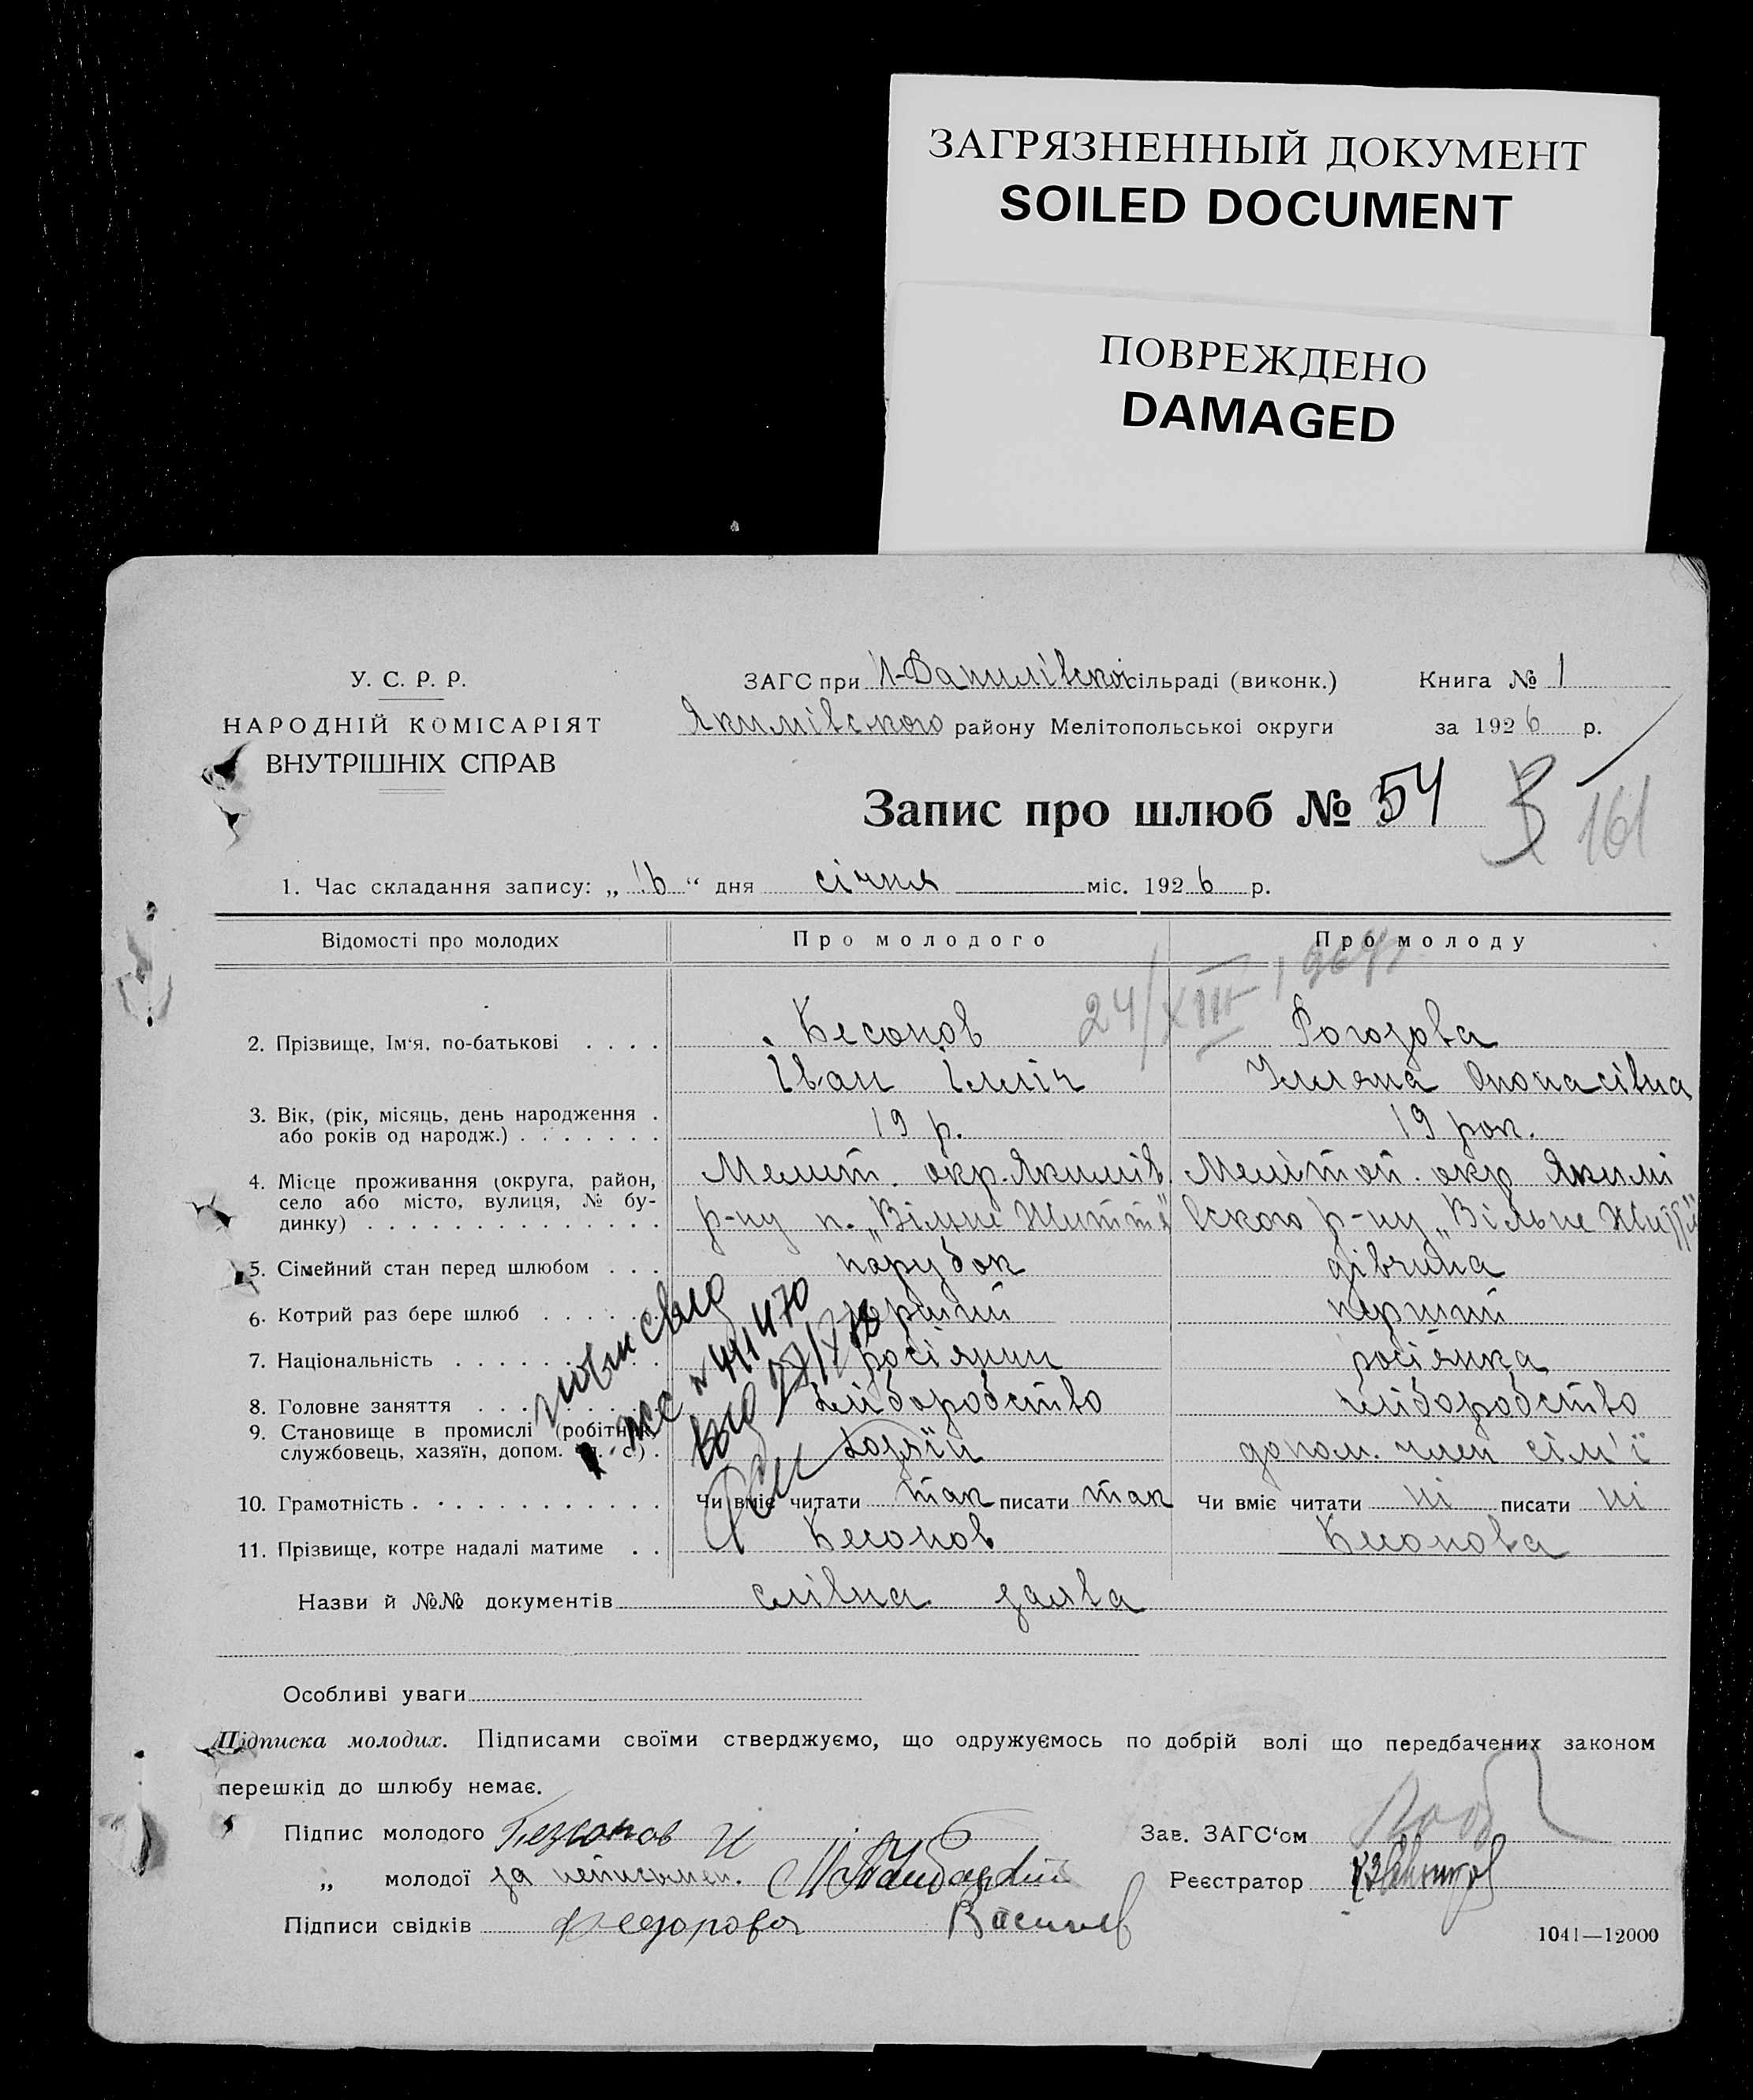 ЗАГРЯЗНЕННЫЙ ДОКУМЕНТ
SOILED DOCUMENT
ПОВРЕЖДЕНО
DAMAGED
У. С. Р. Р.
НАРОДНІЙ КОМІСАРІЯТ
ВНУТРІШНІХ СПРАВ
ЗАГС при Данилівскій сільраді (виконк.) Книга № 1
Якимівського району Мелітопольської округи за 1926 р.
Запис про шлюб № 54 161
1. Час складання запису: „16“ дня січня міс. 1926 р.
Відомості про молодих Про молодого Про молоду
2. Прізвище, Ім'я, по-батькові . . . . Бесонов Рогозова
Іван Ілліч Уляна Опонасівна
3. Вік, (рік, місяць, день народження . або років од народж.) . . . . . . . 19 р. 19 рок.
4. Місце проживання (округа, район, Мелит. окр. Якимів. Мелітоп. окр Якимі
село або місто, вулиця, № бу-
динку) . . . . . . . . . . . . . . р-ну п. „Вільне Життя" вского р-ну „Вільне Життя"
5. Сімейний стан перед шлюбом . . . парубок дівчина
6. Котрий раз бере шлюб . . . . . . перший перший
7. Національність . . . . . . . . . . росіянин росіянка
8. Головне заняття . . . . . . . . . хліборобство хліборобство
9. Становище в промислі (робітник,
службовець, хазяїн, допом. ч. с.) . хозяїн допом. член сім'ї
10. Грамотність . . . . . . . . . . . . Чи вміє читати так писати так Чи вміє читати ні писати ні
11. Прізвище, котре надалі матиме . . Бесонов Бесонова
Назви й №№ документів слівна заява
Особливі уваги
Підписка молодих. Підписами своїми стверджуємо, що одружуємось по добрій волі що передбачених законом
перешкід до шлюбу немає.
Підпис молодого Безсонов И Зав. ЗАГС'ом
„ молодої за неписьмен. Реєстратор
Підписи свідків Федорова Василев
1041—12000